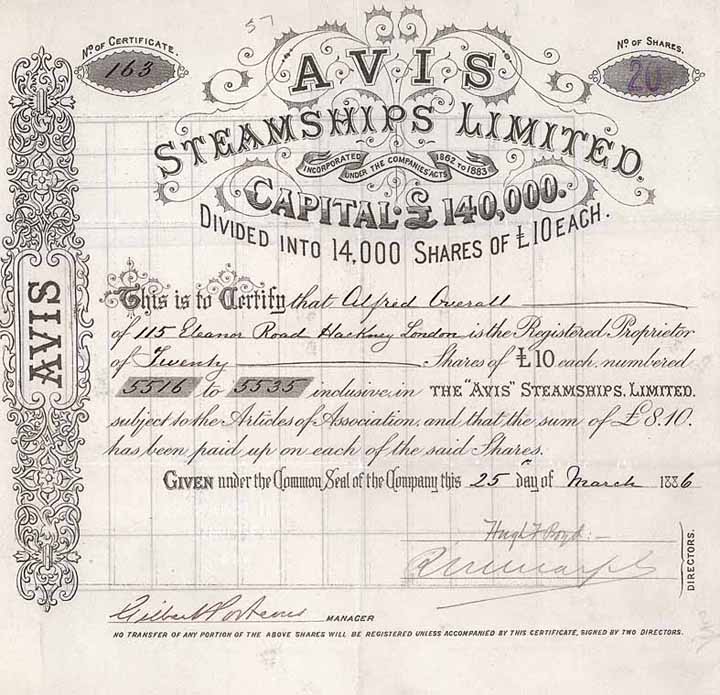 57
No. OF CERTIFICATE.
163
No. OF SHARES.
20
AVIS
STEAMSHIPS LIMITED.
INCORPORATED UNDER THE COMPANIES ACTS 1862 TO 1883
CAPITAL £140,000.
DIVIDED INTO 14,000 SHARES OF £10 EACH.
AVIS
This is to Certify that Alfred Overall
of 115 Eleanor Road Hackney London is the Registered Proprietor
of Twenty Shares of £10 each, numbered
5516 to 5535 inclusive, in THE "AVIS" STEAMSHIPS, LIMITED.
subject to the Articles of Association, and that the sum of £8.10.
has been paid up on each of the said Shares.
GIVEN under the Common Seal of the Company this 25 day of March 1886
Hugh F Boyd
DIRECTORS.
Gilbert Porteous MANAGER
NO TRANSFER OF ANY PORTION OF THE ABOVE SHARES WILL BE REGISTERED UNLESS ACCOMPANIED BY THIS CERTIFICATE, SIGNED BY TWO DIRECTORS.